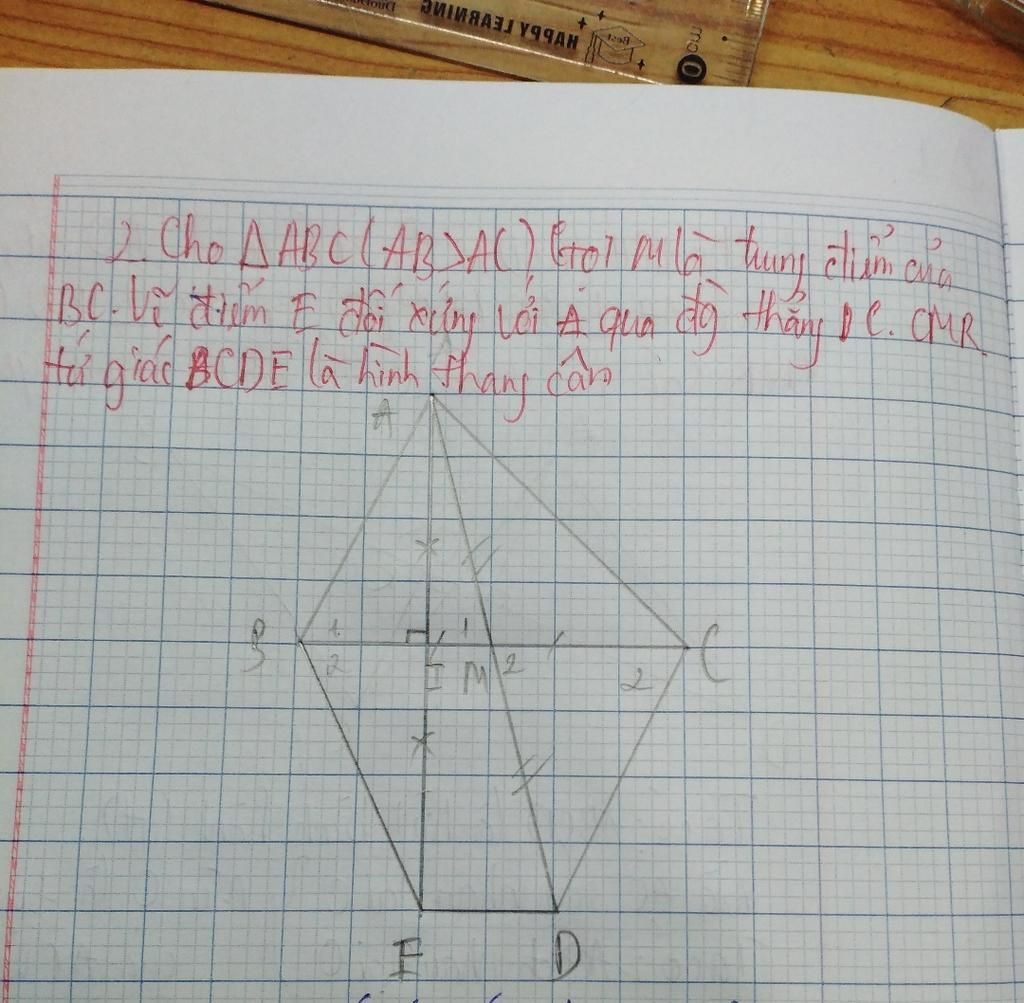 HAPPY LEARNING
Best
0
2. Cho ΔABC (AB>AC) Gọi M là trung điểm của
BC. Vẽ điểm E đối xứng với A qua đg thẳng BC. CMR
tứ giác BCDE là hình thang cân
A
B 1 1 C
2 I M 2 2
E D